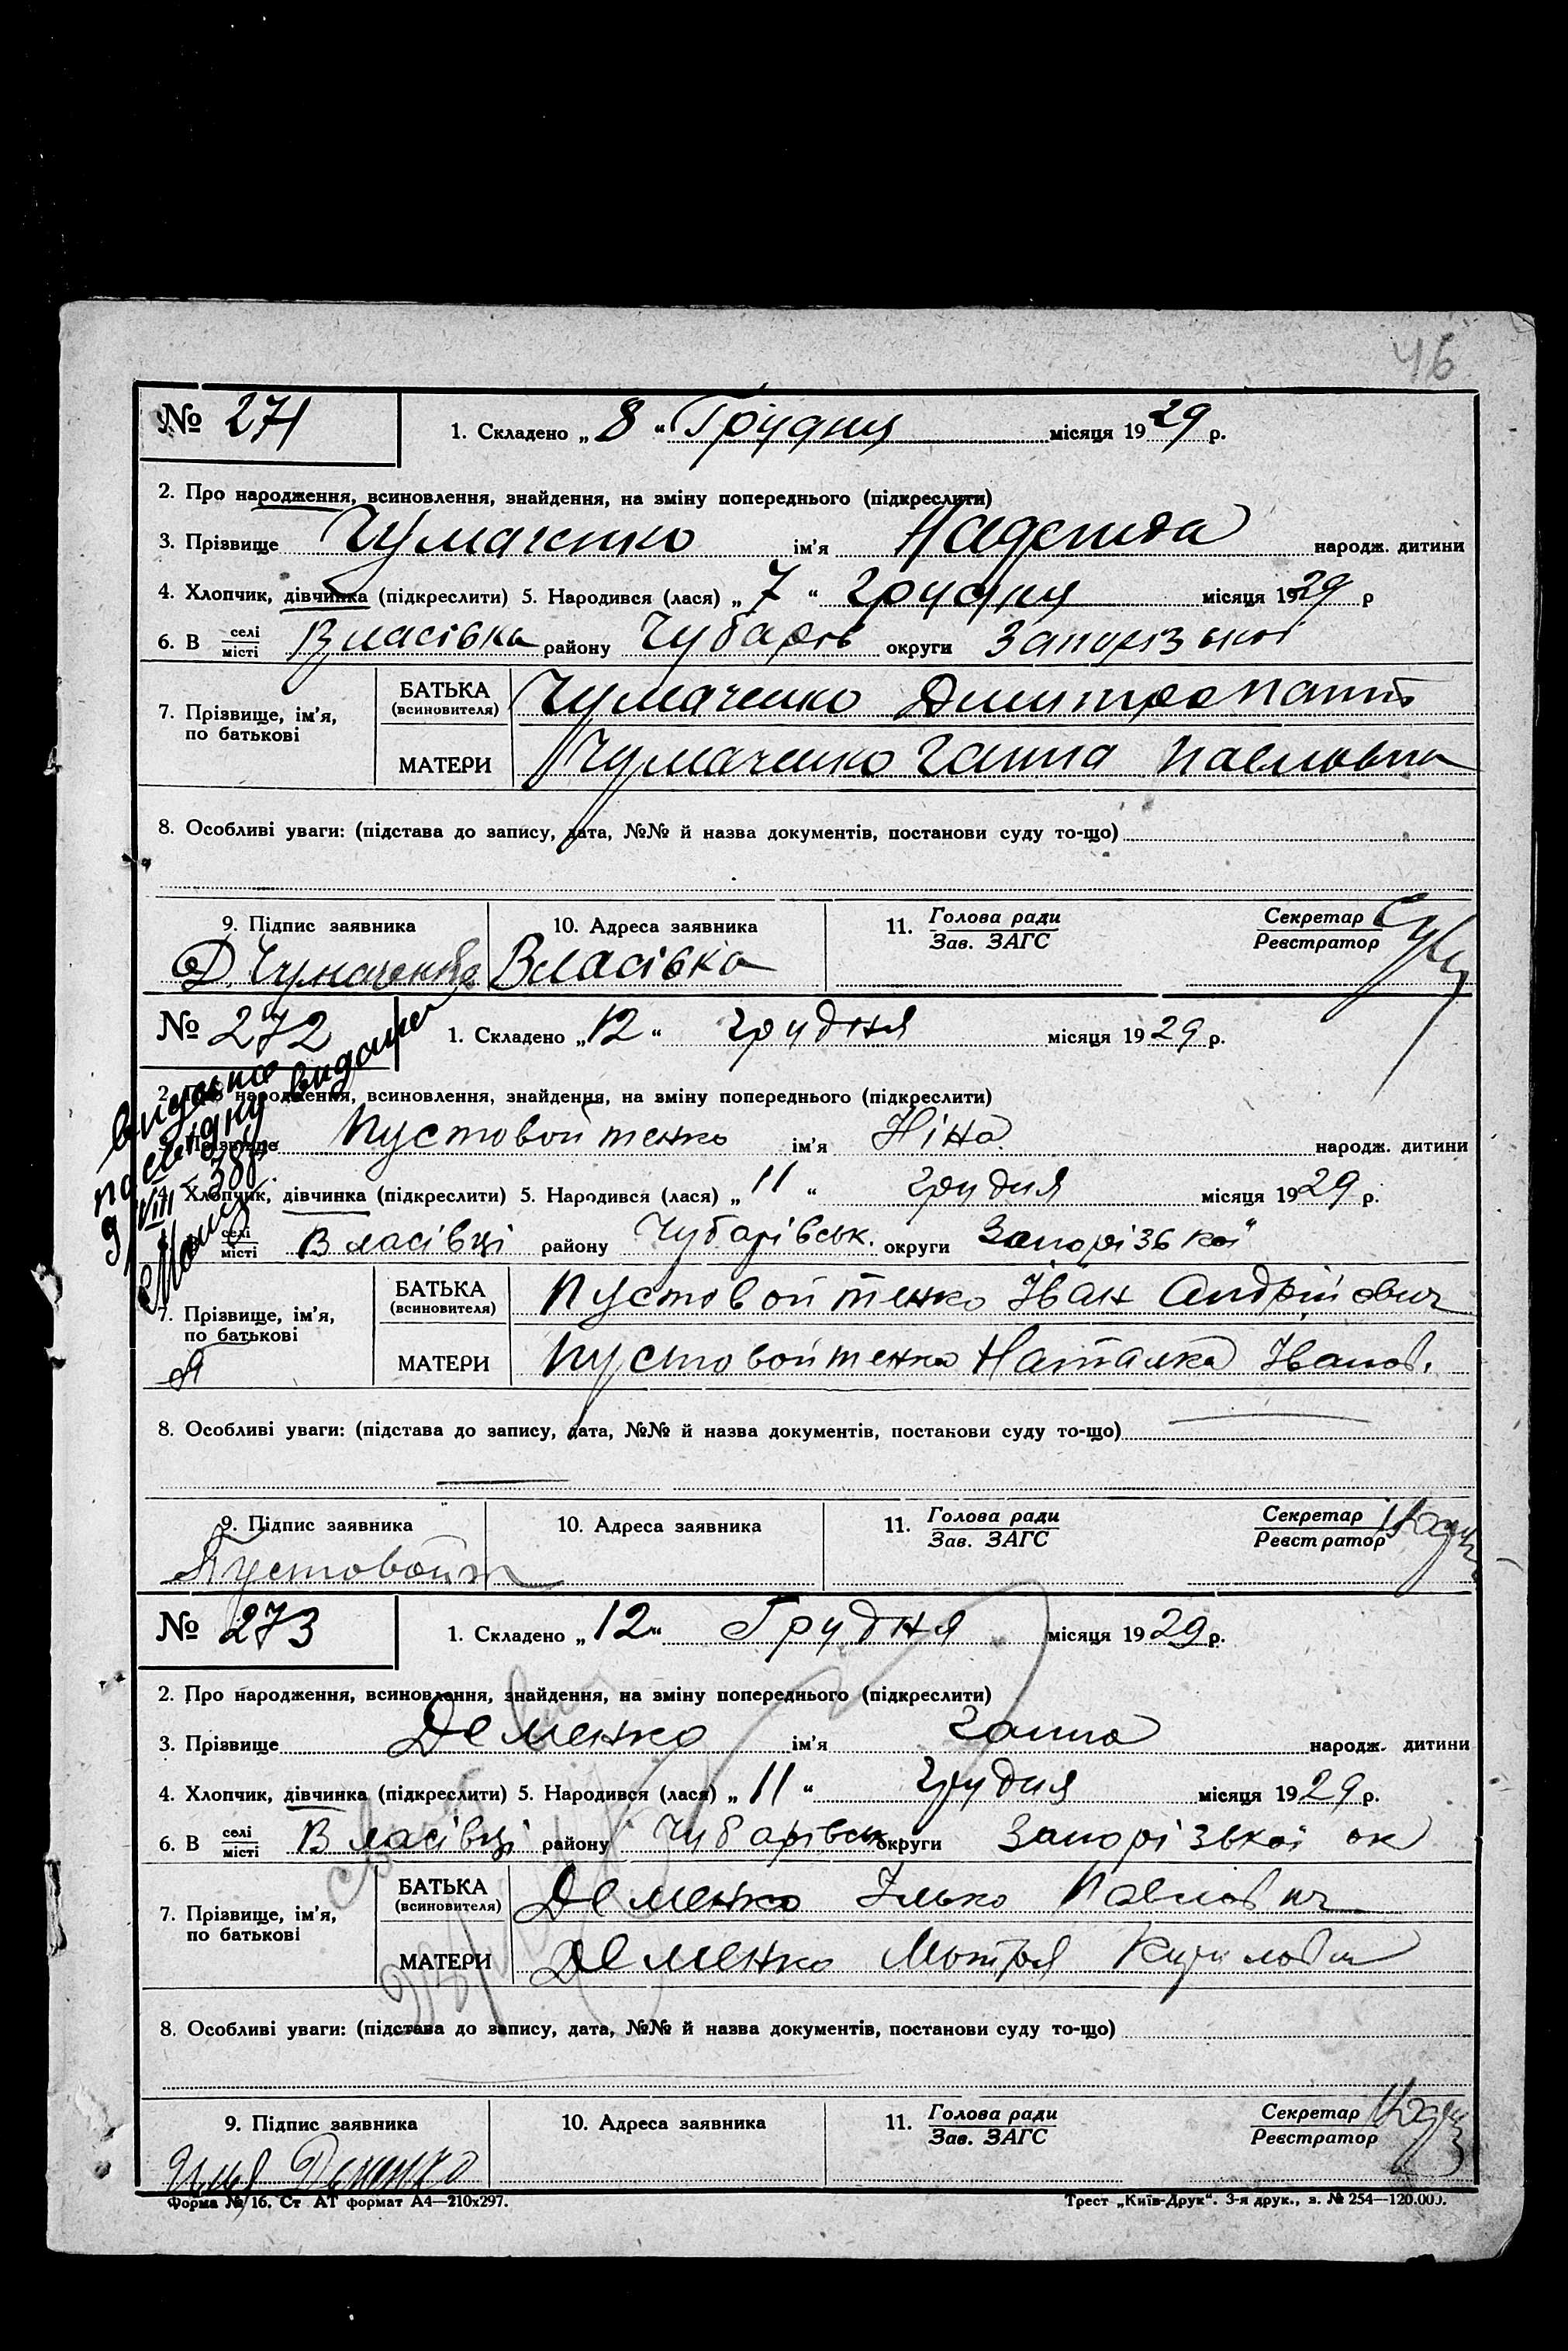 46
№ 271
1. Складено „ 8 “ Грудня місяця 1929 р.
2. Про народження, всиновлення, знайдення, на зміну попереднього (підкреслити)
3. Прізвище Чумаченко ім'я Надежда народж. дитини
4. Хлопчик, дівчинка (підкреслити) 5. Народився (лася) „ 7 “ грудня місяця 1929 р
6. В селі місті Власівка району Чубарів округи Запорізької
7. Прізвище, ім'я, по батькові
БАТЬКА (всиновителя) Чумаченко Дмитро
МАТЕРИ Чумаченко Ганна Павловна
8. Особливі уваги: (підстава до запису, дата, №№ й назва документів, постанови суду то-що)
9. Підпис заявника 10. Адреса заявника 11. Голова ради Зав. ЗАГС Секретар Реєстратор
Д. Чумаченко Власівка
№ 272
1. Складено „ 12 “ грудня місяця 1929 р.
2. Про народження, всиновлення, знайдення, на зміну попереднього (підкреслити)
3. Прізвище Пустовойтенко ім'я Ніна народж. дитини
4. Хлопчик, дівчинка (підкреслити) 5. Народився (лася) „ 11 “ грудня місяця 1929 р.
селі місті Власівці району Чубарівськ. округи Запорізької
7. Прізвище, ім'я, по батькові
БАТЬКА (всиновителя) Пустовойтенко Іван Андрійович
МАТЕРИ Пустовойтенко Наталка Іванов.
8. Особливі уваги: (підстава до запису, дата, №№ й назва документів, постанови суду то-що)
9. Підпис заявника 10. Адреса заявника 11. Голова ради Зав. ЗАГС Секретар Реєстратор
Пустовойт
№ 273
1. Складено „ 12 “ Грудня місяця 1929 р.
2. Про народження, всиновлення, знайдення, на зміну попереднього (підкреслити)
3. Прізвище Деменко ім'я Ганна народж. дитини
4. Хлопчик, дівчинка (підкреслити) 5. Народився (лася) „ 11 “ грудня місяця 1929 р.
6. В селі місті Власівці району Чубарівськ округи Запорізької ок
7. Прізвище, ім'я, по батькові
БАТЬКА (всиновителя) Деменко Ілько Павлович
МАТЕРИ Деменко Мотря Кириловн
8. Особливі уваги: (підстава до запису, дата, №№ й назва документів, постанови суду то-що)
9. Підпис заявника 10. Адреса заявника 11. Голова ради Зав. ЗАГС Секретар Реєстратор
Илля Деменко
Форма № 16. Ст АТ формат А4—210х297. Трест „Київ-Друк“. 3-я друк., з. № 254—120.000.